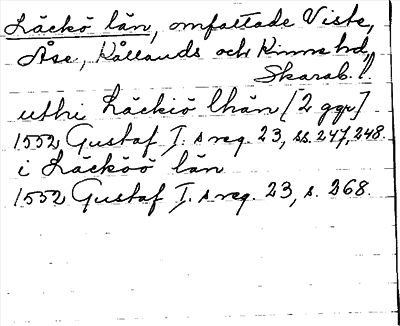 Läckö län, omfattade Viste,
Åse, Kållands och Kinne hd,
Skarab. l.
uthi Läckiö lhän [2 ggr]
1552 Gustaf I. s reg. 23, ss. 247, 248.
i Läcköö län
1552 Gustaf I. s reg. 23, s. 268.